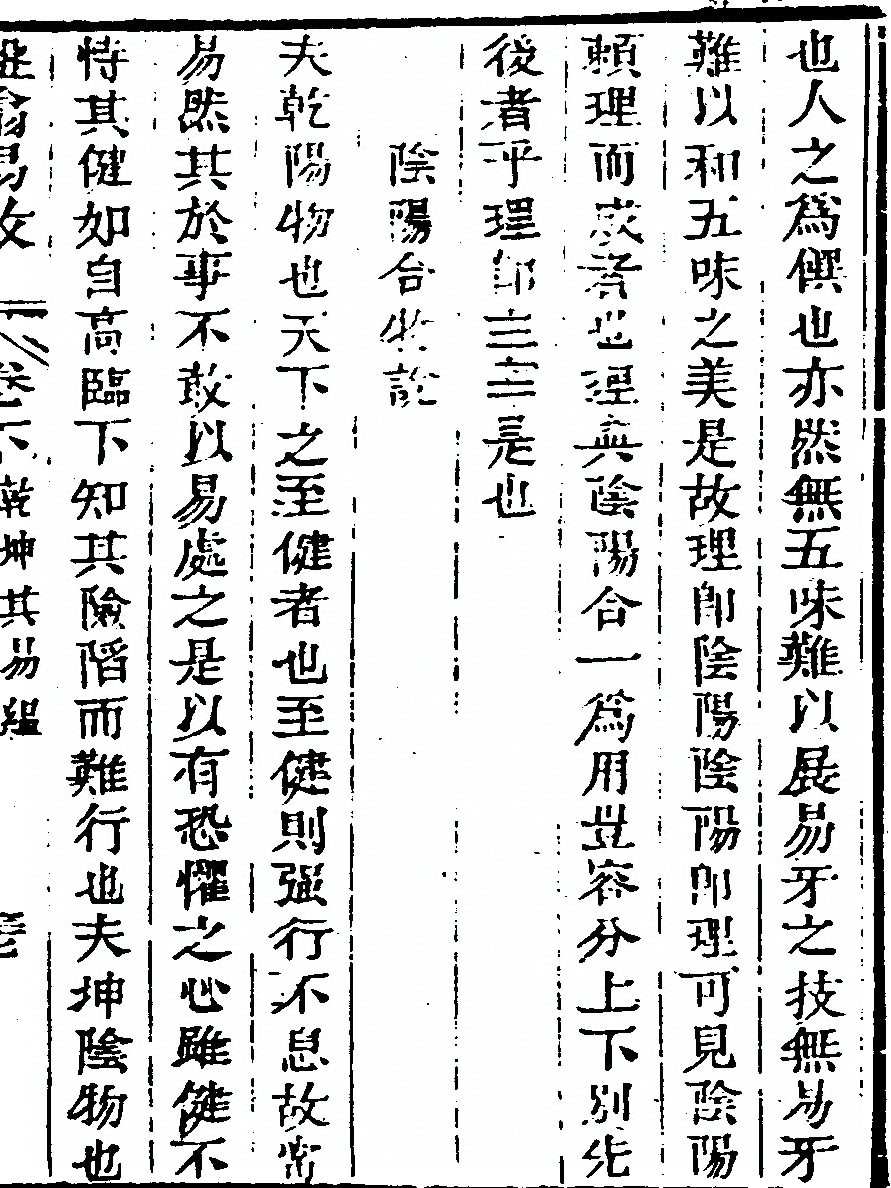 也人之為饌也亦然無五味難以展易牙之技無易牙
難以和五味之美是故理卽陰陽陰陽卽理可見陰陽
賴理而成者也理與陰陽合一為用豈容分上下別先
後者乎理卽主宰是也
陰陽合物說
夫乾陽物也天下之至健者也至健則强行不息故當
易然其於事不敢以易處之是以有恐懼之心雖健不
恃其健如自高臨下知其險陷而難行也夫坤陰物也
易攷 卷下 乾坤其易縕